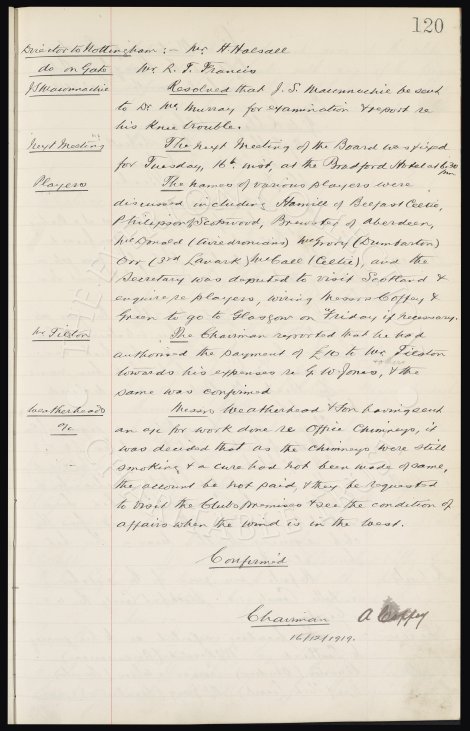 120
Director to Nottingham :- Mr H. Halsall
do on Gate Mr R. T. Francis
J.S Maconnachie Resolved that J. S. Maconnachie be sent
to Dr McMurray for examination & report re
his knee trouble.
Next Meeting The next Meeting of the Board was fixed
for Tuesday, 16th inst, at the Bradford Hotel at 6.30 pm
Players The names of various players were
discussed including Hamill of Belfast Celtic,
Philipson of Scotswood, Brewster of Aberdeen,
McDonald (Airdreonians) McGrory (Dumbarton)
Orr (3rd Lanark) McCall (Celtic), and the
Secretary was deputed to visit Scotland &
enquire re players, wiring Messrs Coffey &
Green to go to Glasgow on Friday if necessary.
Mr Filston The Chairman reported that he had
authorised the payment of £10 to Mr Filston
towards his expenses re G W Jones, & the
same was confirmed
Weatherheads a/c Messrs Weatherhead & Son having sent
an a/c for work done re Office Chimneys, it
was decided that as the chimneys were still
smoking & a cure had not been made of same,
the account be not paid, & they be requested
to visit the Clubs premises & see the condition of
affairs when the wind is in the West.
Confirmed
Chairman A Coffey
16/12/1919.